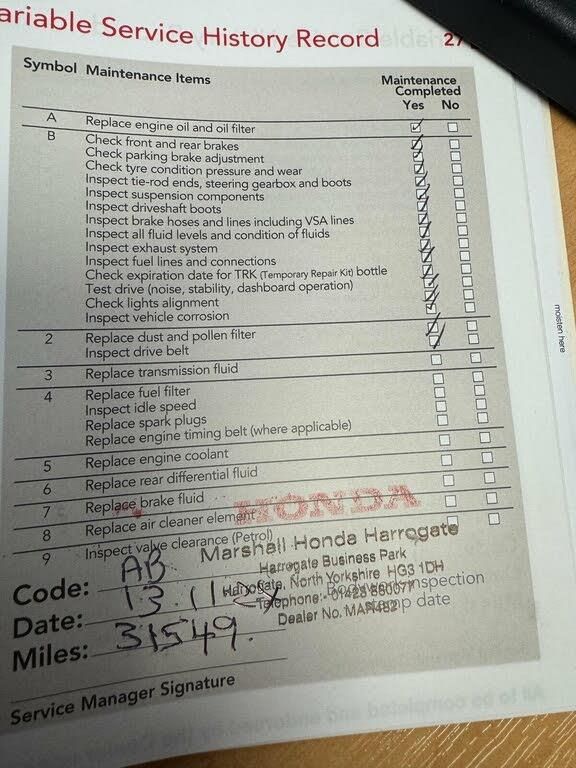 ariable Service History Record 27
Symbol Maintenance Items Maintenance Completed
Yes No
A Replace engine oil and oil filter
B Check front and rear brakes
Check parking brake adjustment
Check tyre condition pressure and wear
Inspect tie-rod ends, steering gearbox and boots
Inspect suspension components
Inspect driveshaft boots
Inspect brake hoses and lines including VSA lines
Inspect all fluid levels and condition of fluids
Inspect exhaust system
Inspect fuel lines and connections
Check expiration date for TRK (Temporary Repair Kit) bottle
Test drive (noise, stability, dashboard operation)
Check lights alignment
Inspect vehicle corrosion
2 Replace dust and pollen filter
Inspect drive belt
3 Replace transmission fluid
4 Replace fuel filter
Inspect idle speed
Replace spark plugs
Replace engine timing belt (where applicable)
5 Replace engine coolant
6 Replace rear differential fluid
7 Replace brake fluid
8 Replace air cleaner element
9 Inspect valve clearance (Petrol)
HONDA
Marshall Honda Harrogate
Harrogate Business Park
Harrogate, North Yorkshire HG3 1DH
Telephone:
Dealer No.
inspection
stamp date
Code: AB
Date: 13.11
Miles: 31549.
Service Manager Signature
moisten here